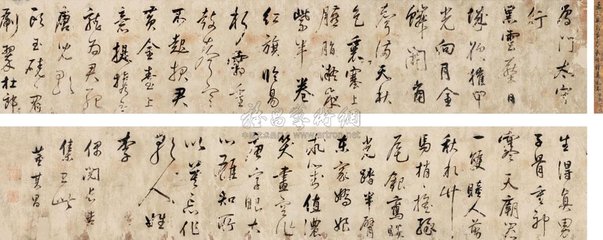 雁門太守
行
黑雲壓
城欲摧甲
光向月金
鱗開角
聲滿天秋
色裏塞上
臙脂凝夜
紫半卷
紅旗臨易
水霜重
鼓寒聲
不起報君
黃金臺上
意提攜玉
龍為君死
唐兒歌
頭玉磽磽眉
刷翠杜郎
生得真男
子骨重神
寒天廟器
一雙瞳人剪
秋水竹
馬梢梢搖綠
尾銀鸞睒
光踏半臂
東家嬌娘
求對值濃
笑畫空作
唐字眼大
心雄知所
以莫忘作
歌人姓
李
偶閱長吉
集書此
董其昌